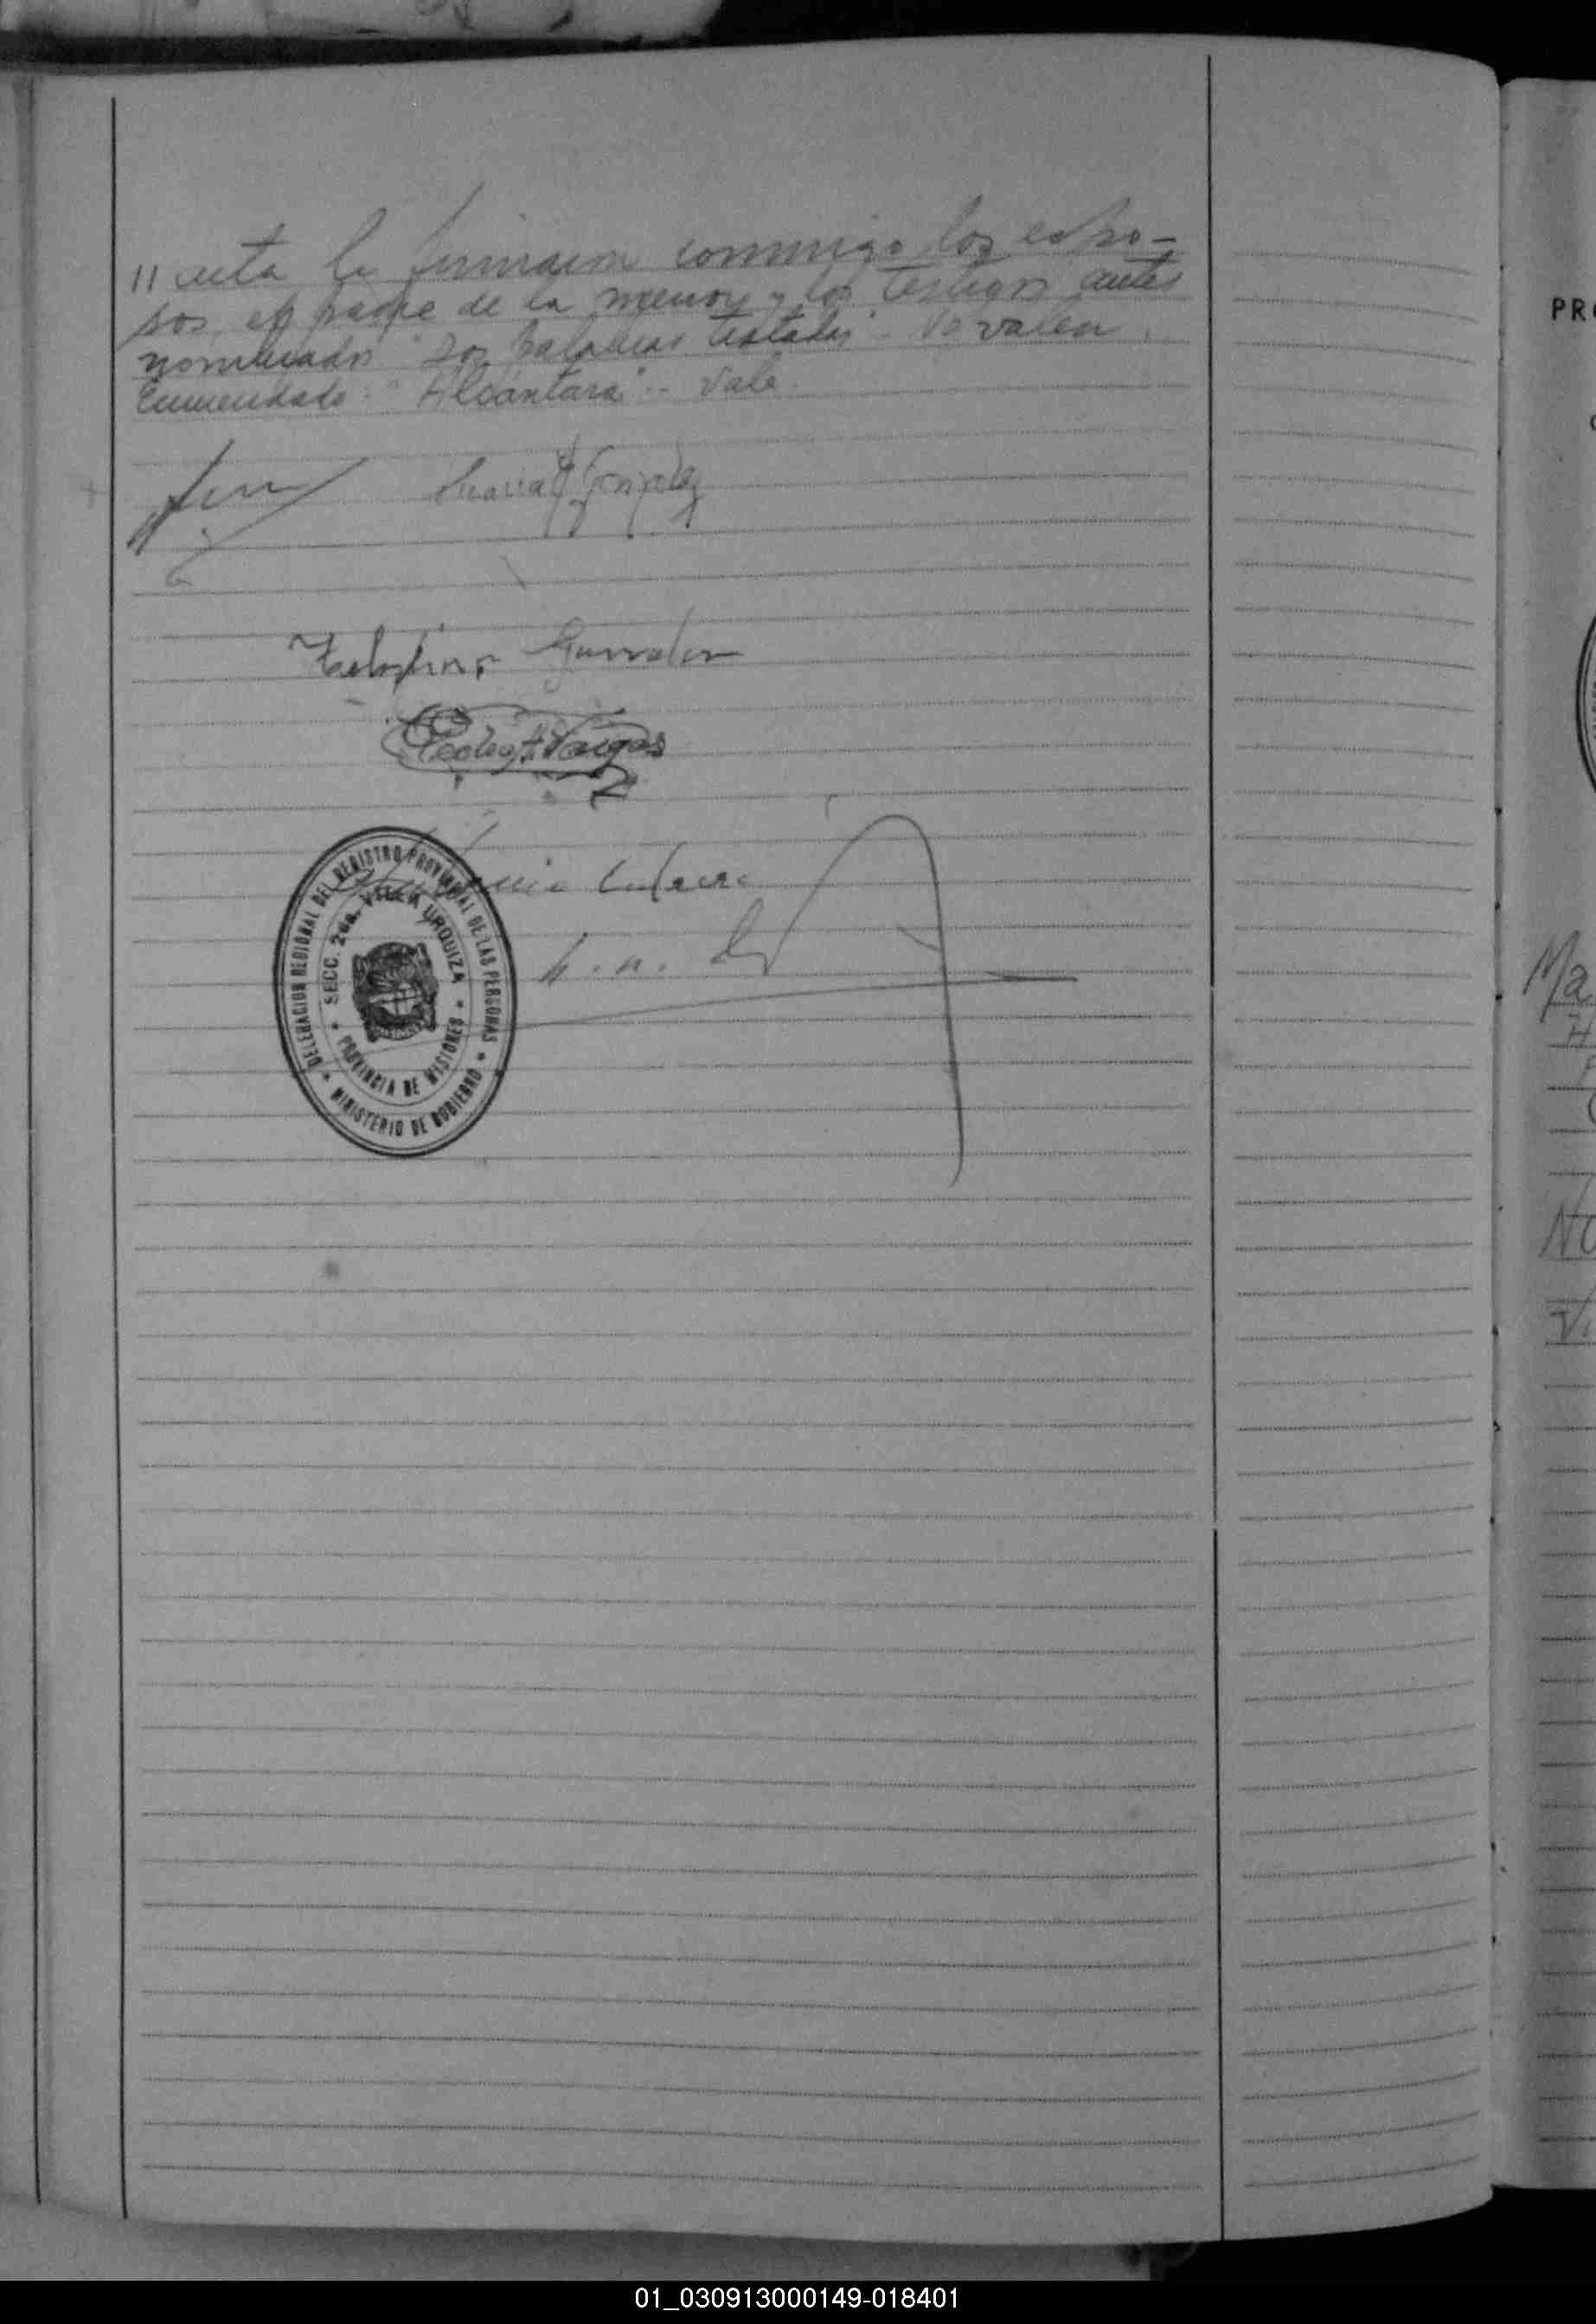 11 acta la firmaron conmigo los espo-
sos el padre de la menor y los testigos antes
nombrados "Dos palabras testadas" - No valen.
Enmendado: "Alcantara" - Vale.
Maria Gonzalez
Pedro A. Vargas
DELEGACION REGIONAL DEL REGISTRO PROVINCIAL DE LAS PERSONAS
SECC. 2da. VILLA URQUIZA
PROVINCIA DE MISIONES
MINISTERIO DE GOBIERNO
PR
Ma
01_030913000149-018401